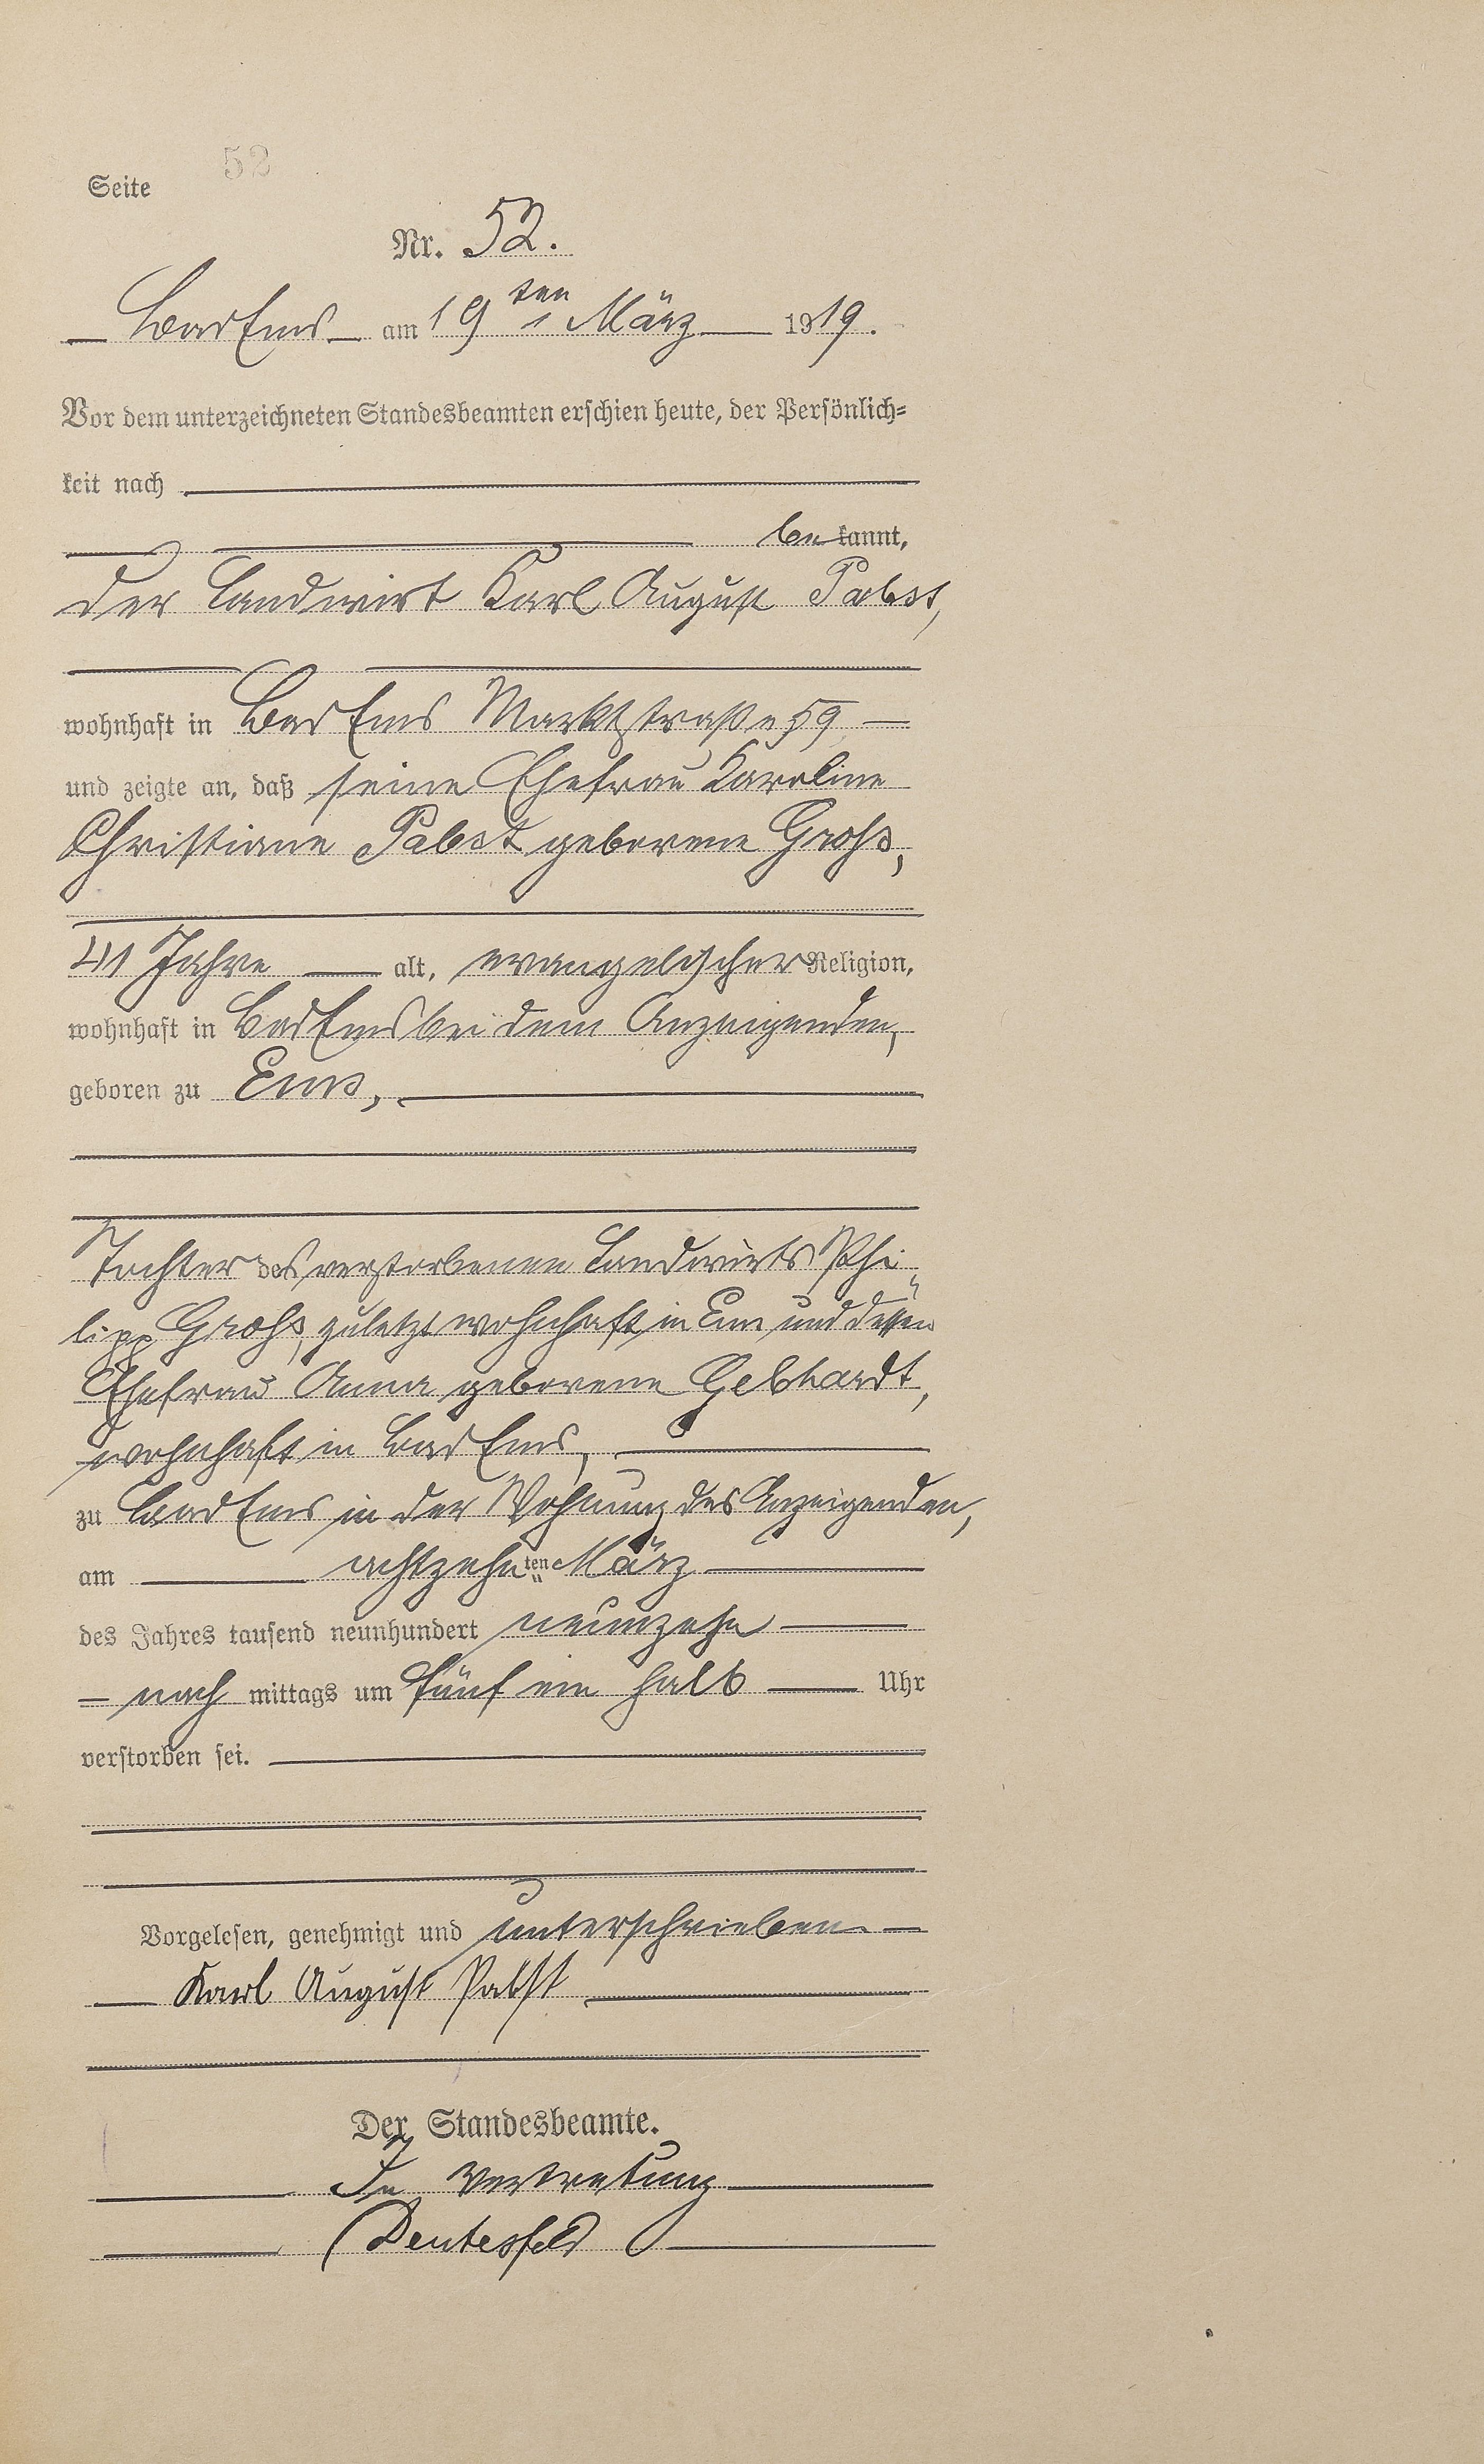 52
Seite
Nr. 52.
Bad Ems am 19ten März 1919.
Vor dem unterzeichneten Standesbeamten erschien heute, der Persönlich=
keit nach
be kannt,
der Landwirt Karl August Pabst,
wohnhaft in Bad Ems Marktstraße 59
und zeigte an, daß seine Ehefrau Karoline
Christiane Pabst geborene Groß,
41 Jahre alt, evangelischer Religion,
wohnhaft in Bad Ems bei dem Anzeigenden,
geboren zu Ems,
Tochter des verstorbenen Landwirts Phi-
lipp Groß, zuletzt wohnhaft in Ems und dessen
Ehefrau Anna geborene Gebhardt,
wohnhaft in Bad Ems,
zu Bad Ems in der Wohnung des Anzeigenden,
am achtzehnten März
des Jahres tausend neunhundert neunzehn
nach mittags um fünf ein halb Uhr
verstorben sei.
Vorgelesen, genehmigt und unterschrieben
Karl August Pabst
Der Standesbeamte.
In Vertretung
Deutesfeld